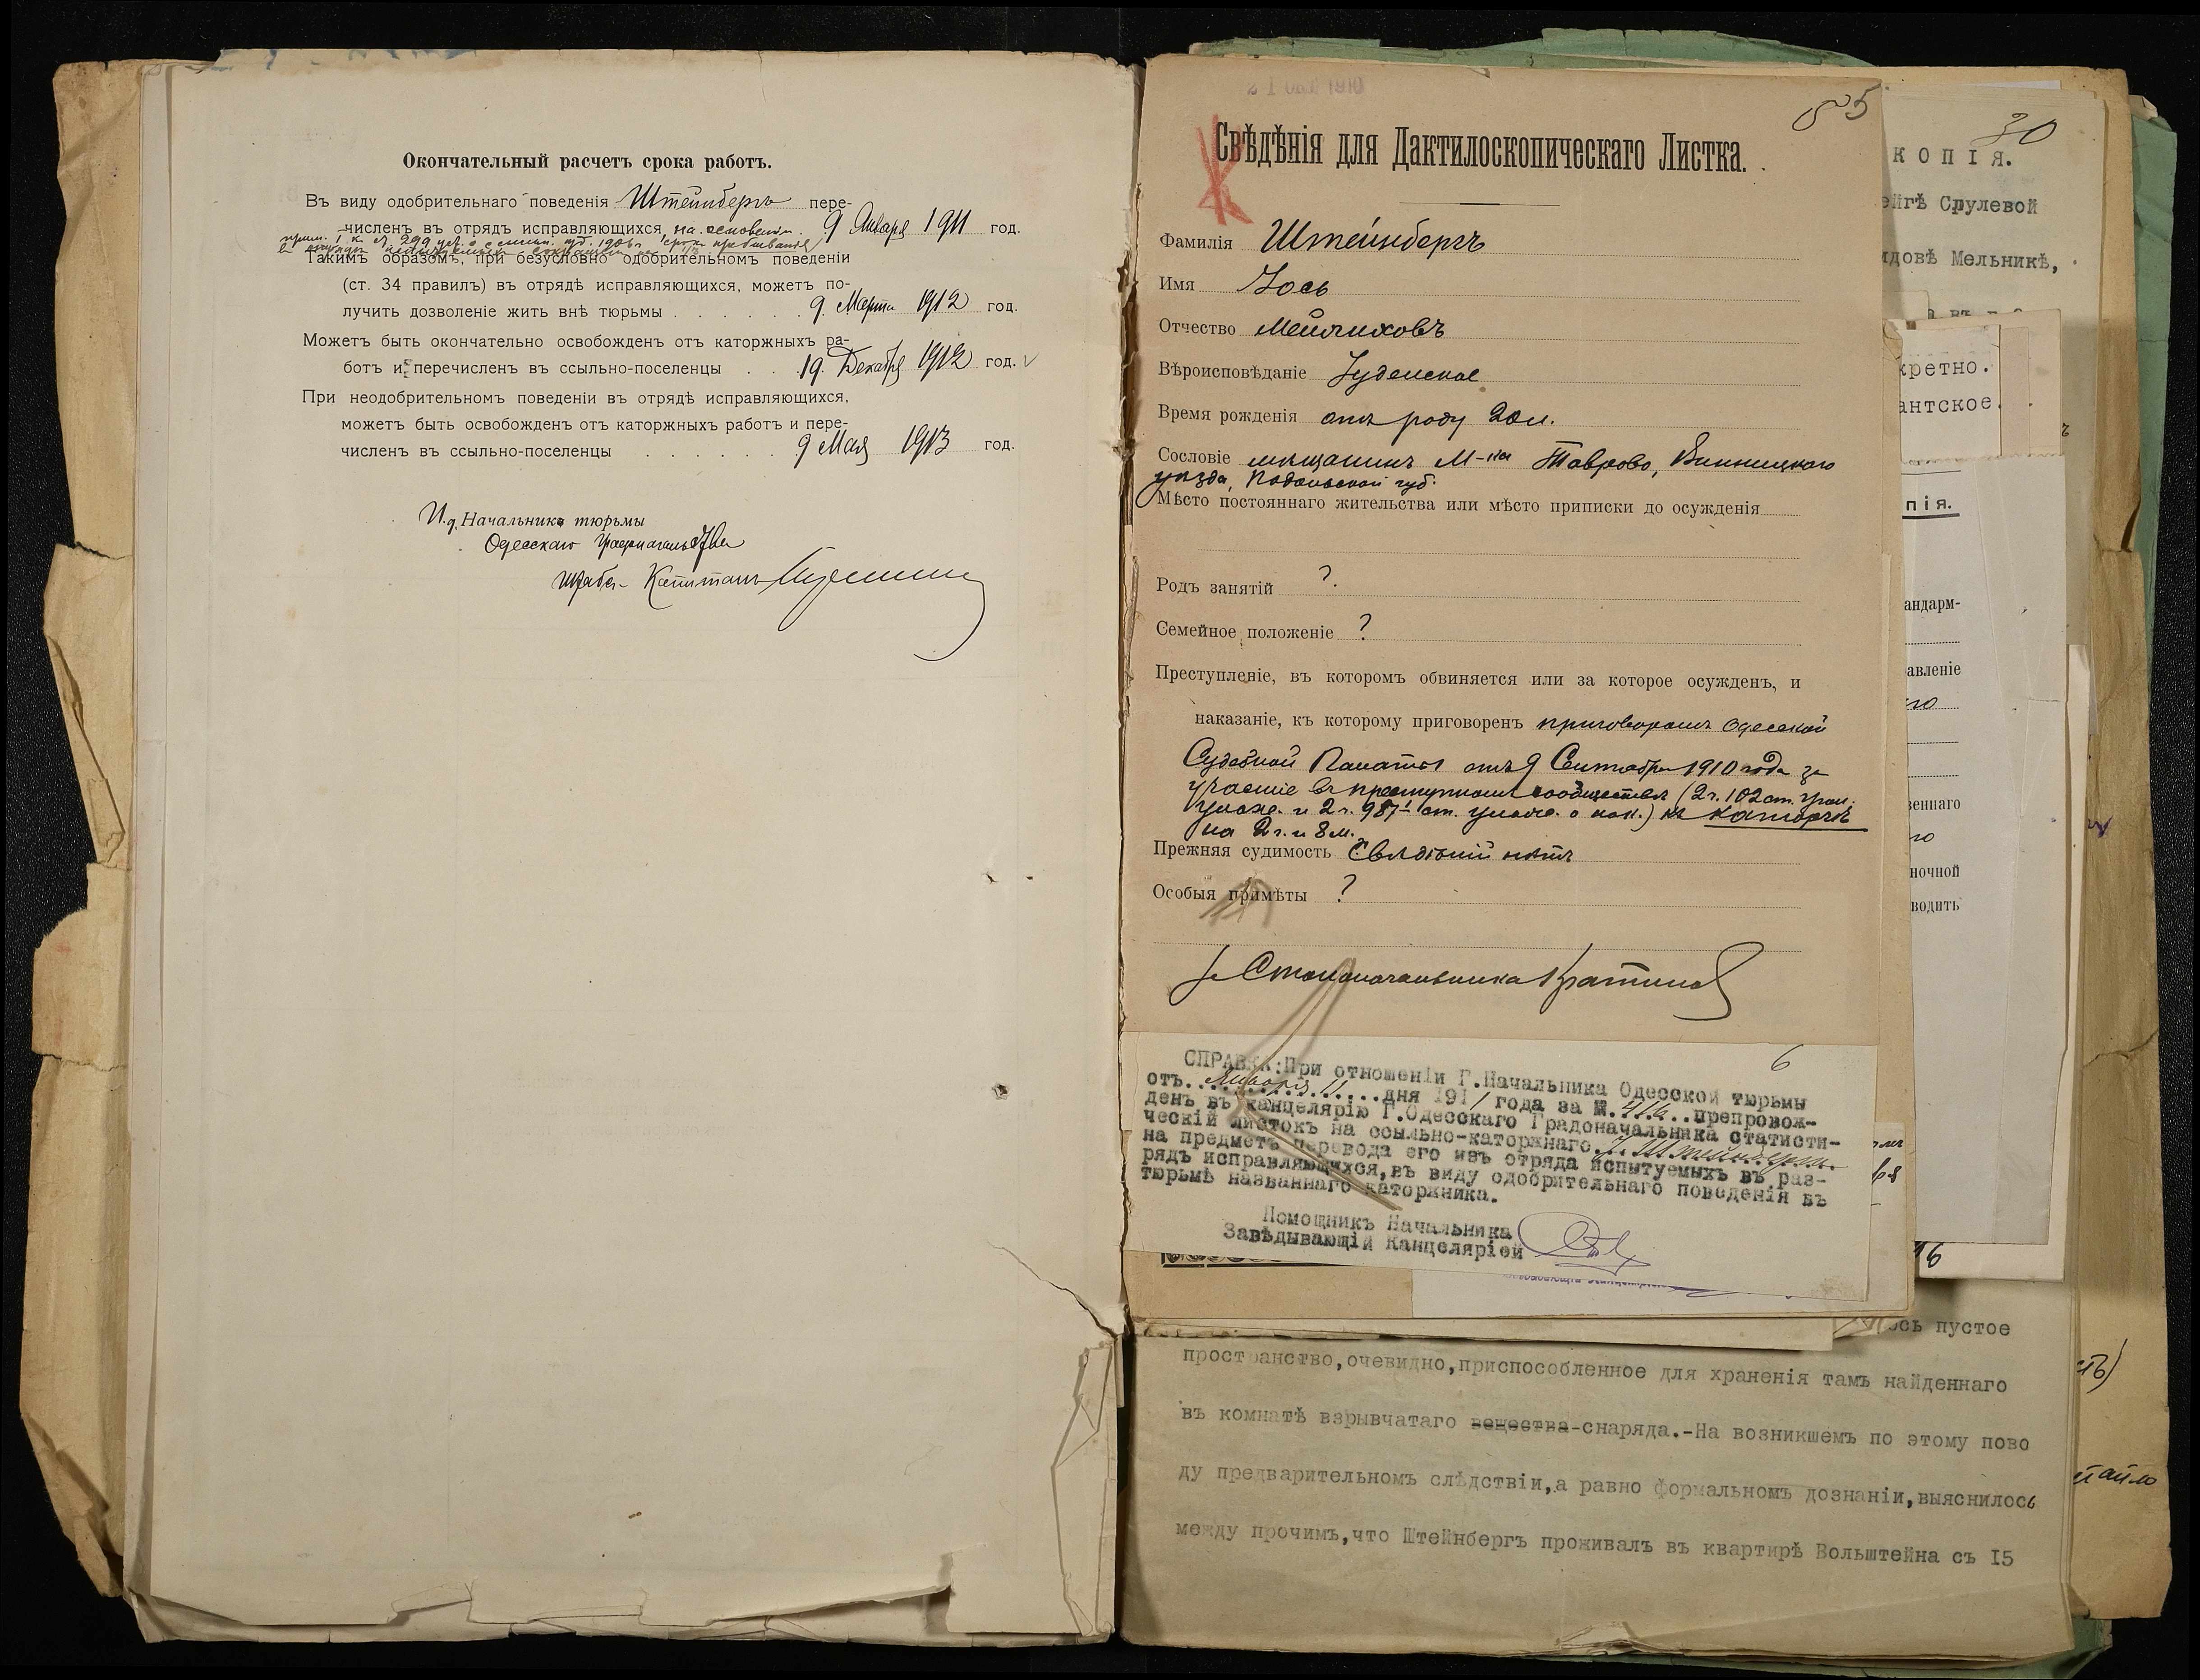 Окончательный расчетъ срока работъ.
Въ виду одобрительнаго поведенія Штейнбергъ пере-
численъ въ отрядъ исправляющихся на основаніи 9 Января 1911 год.
Такимъ образомъ, при безусловно одобрительномъ поведеніи
(ст. 34 правилъ) въ отрядѣ исправляющихся, можетъ по-
лучить дозволеніе жить внѣ тюрьмы . . . . . . 9 Марта 1912 год.
Можетъ быть окончательно освобожденъ отъ каторжныхъ ра-
ботъ и перечисленъ въ ссыльно-поселенцы . . . 19 Декабря 1912 год.
При неодобрительномъ поведеніи въ отрядѣ исправляющихся,
можетъ быть освобожденъ отъ каторжныхъ работъ и пере-
численъ въ ссыльно-поселенцы . . . . . . . 9 Мая 1913 год.
И.д. Начальника тюрьмы
Одесскаго Градоначальства
Штабс-Капитанъ
85
Свѣдѣнія для Дактилоскопическаго Листка.
Фамилія Штейнбергъ
Имя Іось
Отчество Мейлиховъ
Вѣроисповѣданіе Іудейское
Время рожденія отъ роду 20 л.
Сословіе мѣщанинъ М-ка Таврово, Винницкаго
уѣзда, Подольской губ.
Мѣсто постояннаго жительства или мѣсто приписки до осужденія
Родъ занятій ?
Семейное положеніе ?
Преступленіе, въ которомъ обвиняется или за которое осужденъ, и
наказаніе, къ которому приговоренъ приговоромъ Одесской
Судебной Палаты отъ 9 Сентября 1910 года за
участіе въ преступномъ сообществѣ (2 ч. 102 ст. угол.
улож. и 2 ч. 987¹ ст. улож. о нак.) къ каторгѣ
на 2 г. и 8 м.
Прежняя судимость Свѣдѣній нѣтъ
Особыя примѣты ?
Столоначальника
6
СПРАВКА:При отношеніи Г.Начальника Одесской тюрьмы
отъ Января 11 дня 1911 года за №.416..препровож-
денъ въ канцелярію Г.Одесскаго Градоначальника статисти-
ческій листокъ на ссыльно-каторжнаго І. Штейнберга
на предметъ перевода его изъ отряда испытуемыхъ въ раз-
рядъ исправляющихся,въ виду одобрительнаго поведенія въ
тюрьмѣ названнаго каторжника.
Помощникъ Начальника
Завѣдывающій Канцеляріей
пустое
пространство,очевидно,приспособленное для храненія тамъ найденнаго
въ комнатѣ взрывчатаго вещества-снаряда.-На возникшемъ по этому пово
ду предварительномъ слѣдствіи,а равно формальномъ дознаніи,выяснилось
между прочимъ,что Штейнбергъ проживалъ въ квартирѣ Вольштейна съ 15
30
КОПІЯ.
Срулевой
Мельникѣ,